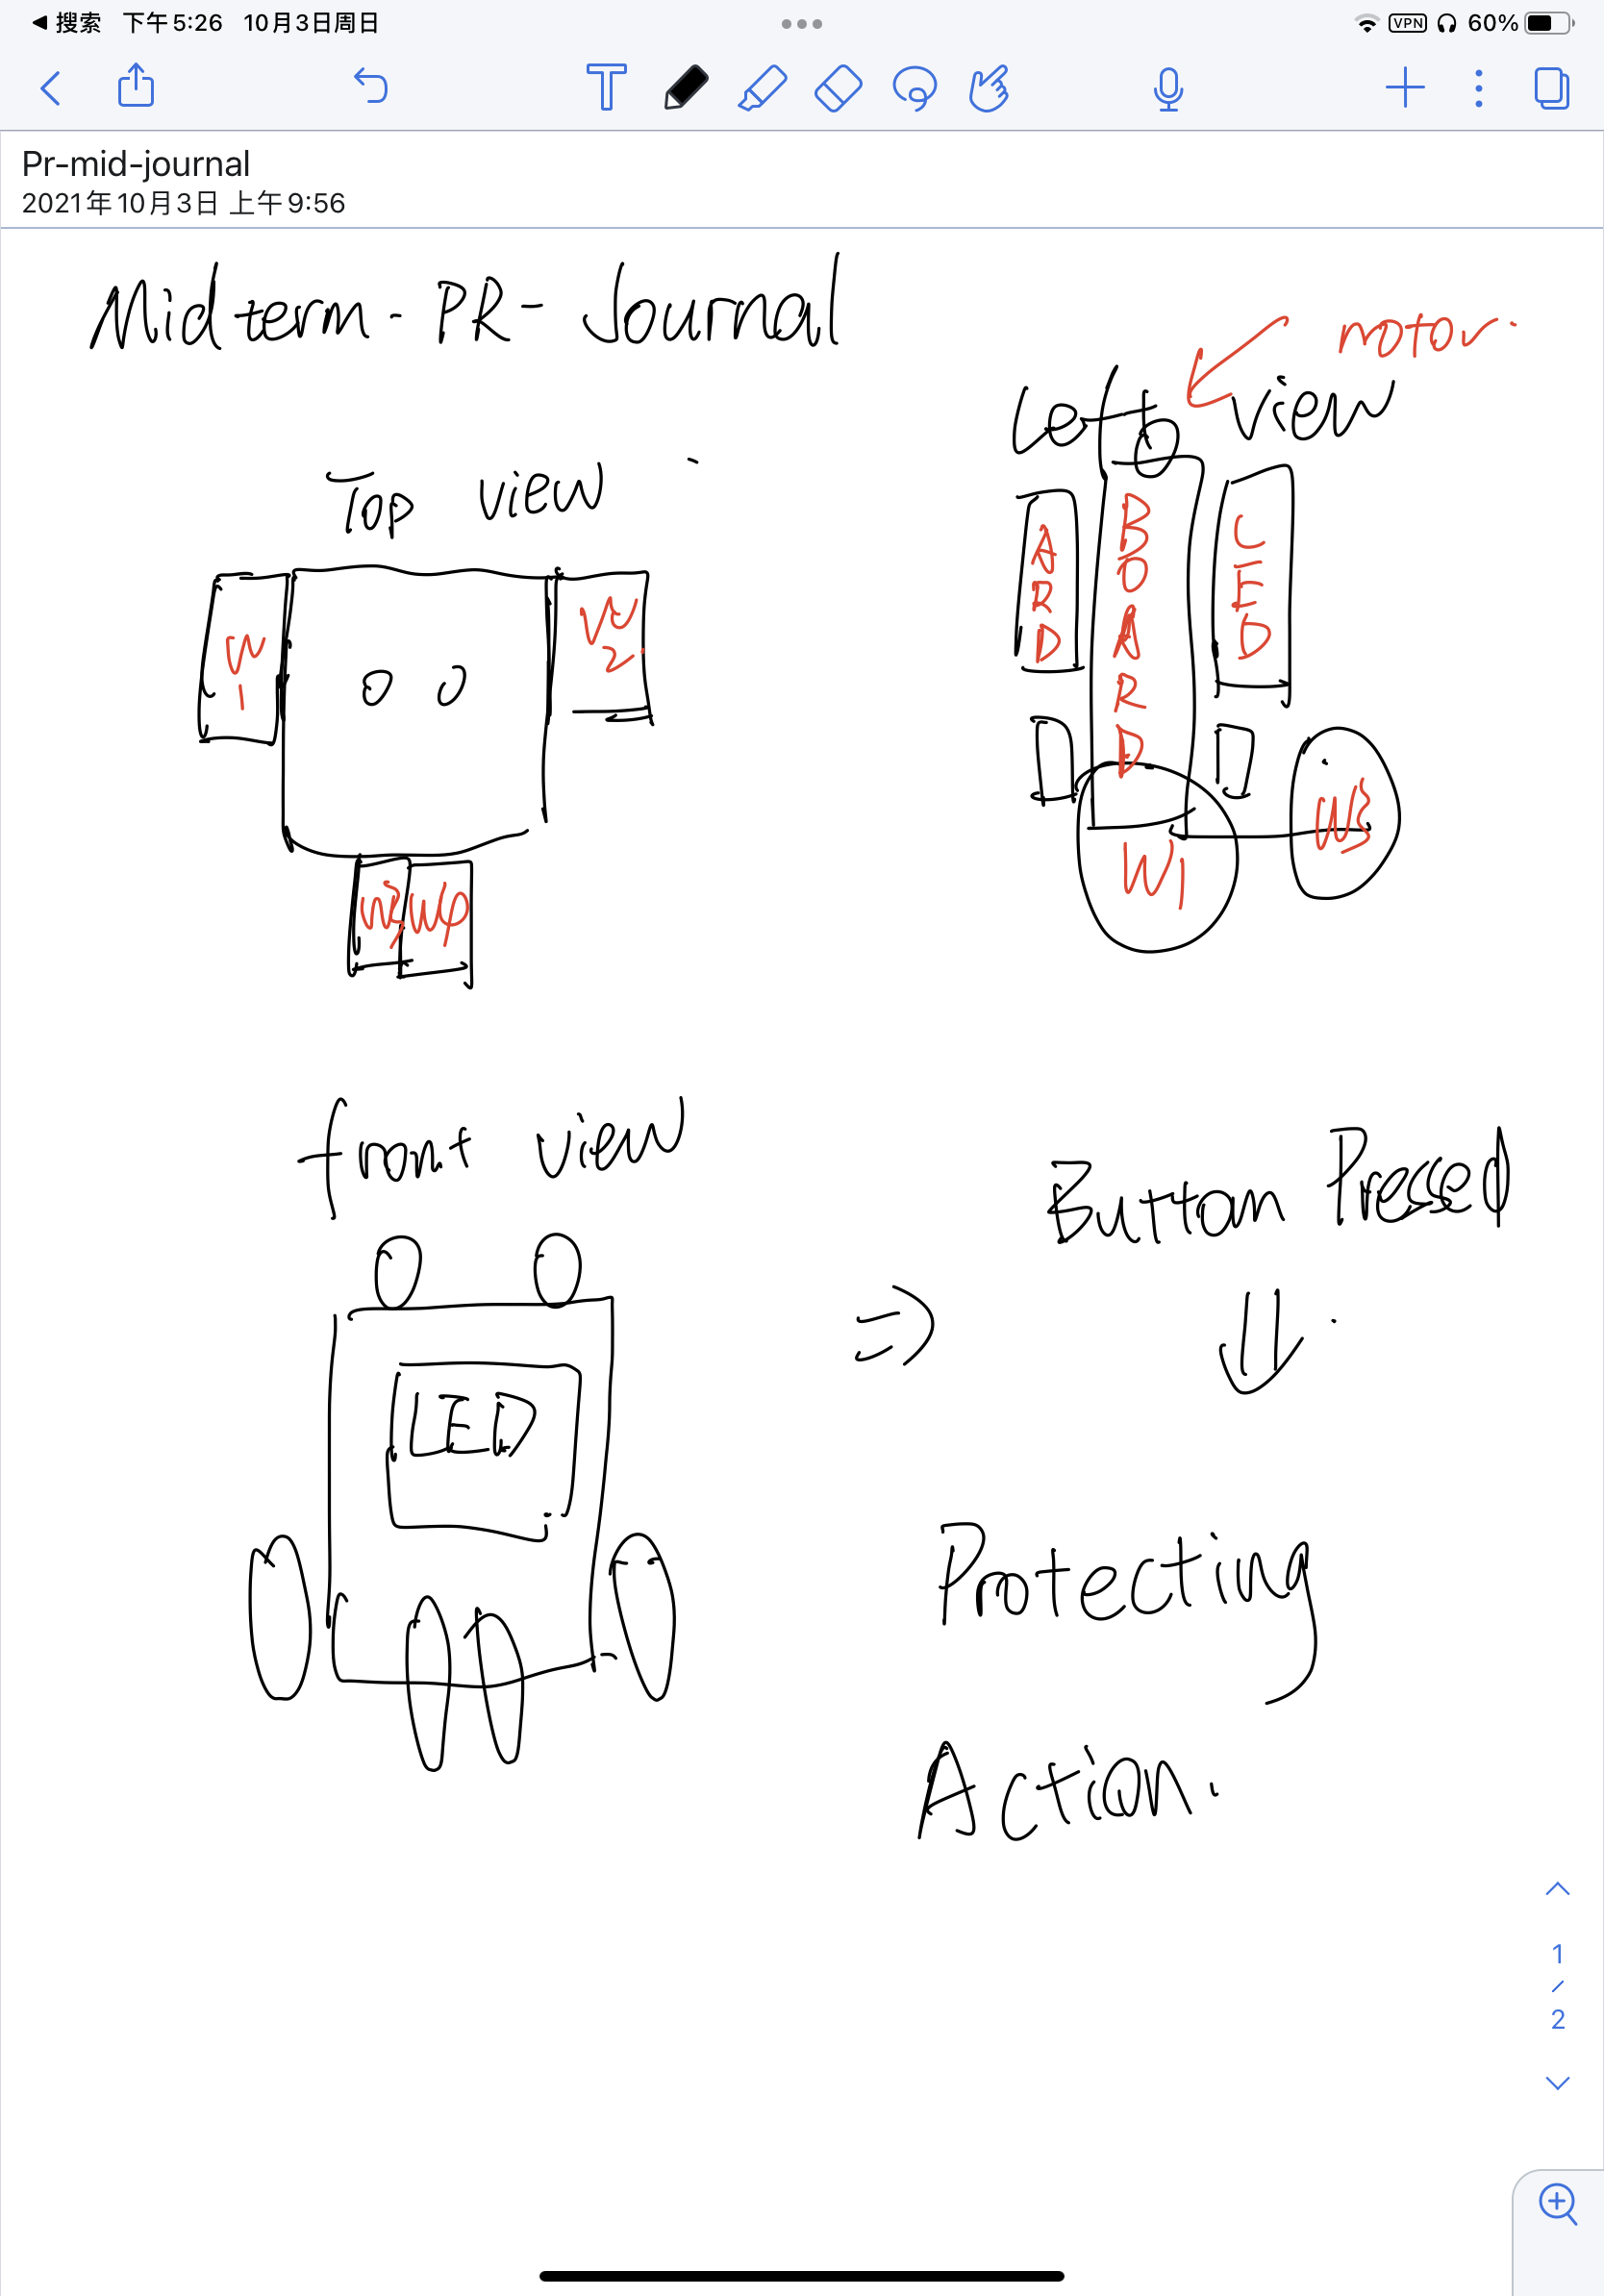 搜索 下午5:26 10月3日周日
VPN 60%
Pr-mid-journal
2021年10月3日 上午9:56
Midterm - PR - Journal
motor.
Left view
Top view
W1
W2
W3 W4
ARD
BOARD
LED
W1
W3
front view
LED
Button Pressed
Protecting
Action.
1
/
2